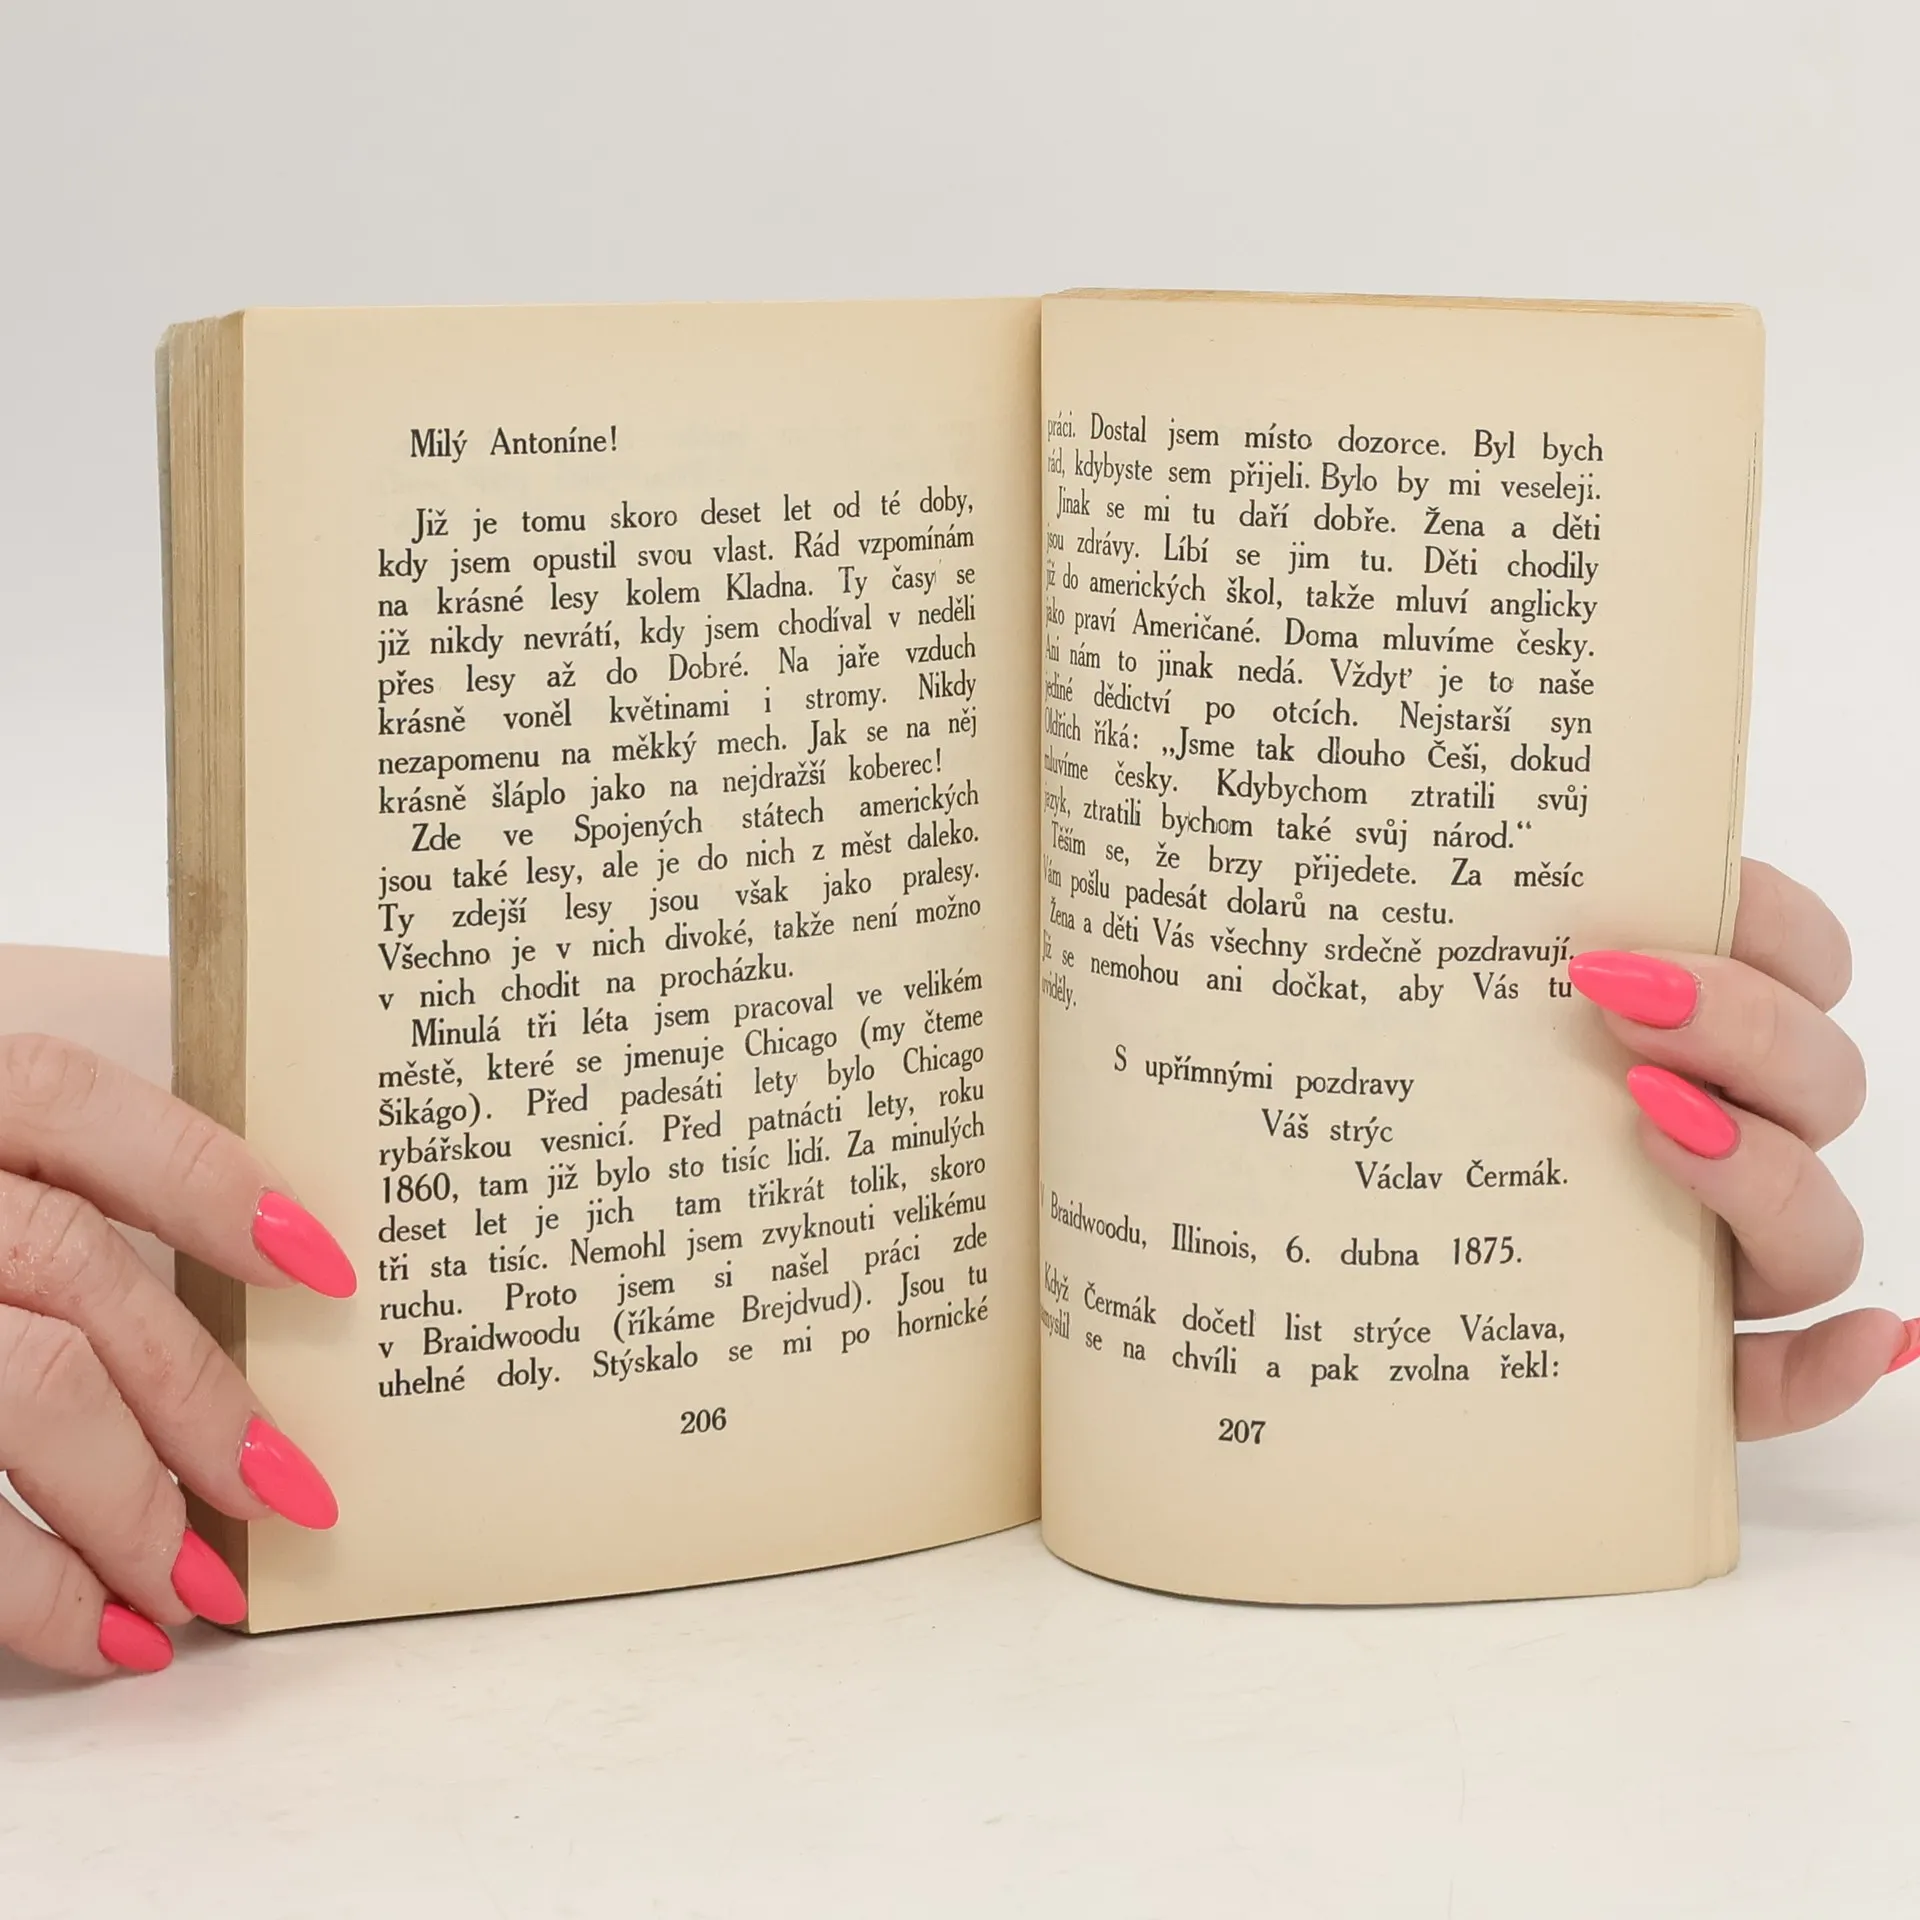 Milý Antoníne!
Již je tomu skoro deset let od té doby,
kdy jsem opustil svou vlast. Rád vzpomínám
na krásné lesy kolem Kladna. Ty časy se
již nikdy nevrátí, kdy jsem chodíval v neděli
přes lesy až do Dobré. Na jaře vzduch
krásně voněl květinami i stromy. Nikdy
nezapomenu na měkký mech. Jak se na něj
krásně šláplo jako na nejdražší koberec!
Zde ve Spojených státech amerických
jsou také lesy, ale je do nich z měst daleko.
Ty zdejší lesy jsou však jako pralesy.
Všechno je v nich divoké, takže není možno
v nich chodit na procházku.
Minulá tři léta jsem pracoval ve velikém
městě, které se jmenuje Chicago (my čteme
Šikágo). Před padesáti lety bylo Chicago
rybářskou vesnicí. Před patnácti lety, roku
1860, tam již bylo sto tisíc lidí. Za minulých
deset let je jich tam třikrát tolik, skoro
tři sta tisíc. Nemohl jsem zvyknouti velikému
ruchu. Proto jsem si našel práci zde
v Braidwoodu (říkáme Brejdvud). Jsou tu
uhelné doly. Stýskalo se mi po hornické
206
práci. Dostal jsem místo dozorce. Byl bych
rád, kdybyste sem přijeli. Bylo by mi veseleji.
Jinak se mi tu daří dobře. Žena a děti
jsou zdrávy. Líbí se jim tu. Děti chodily
již do amerických škol, takže mluví anglicky
jako praví Američané. Doma mluvíme česky.
Ani nám to jinak nedá. Vždyť je to naše
jediné dědictví po otcích. Nejstarší syn
Oldřich říká: „Jsme tak dlouho Češi, dokud
mluvíme česky. Kdybychom ztratili svůj
jazyk, ztratili bychom také svůj národ.“
Těším se, že brzy přijedete. Za měsíc
Vám pošlu padesát dolarů na cestu.
Žena a děti Vás všechny srdečně pozdravují.
Již se nemohou ani dočkat, aby Vás tu
uviděly.
S upřímnými pozdravy
Váš strýc
Václav Čermák.
V Braidwoodu, Illinois, 6. dubna 1875.
Když Čermák dočetl list strýce Václava,
zamyslil se na chvíli a pak zvolna řekl:
207